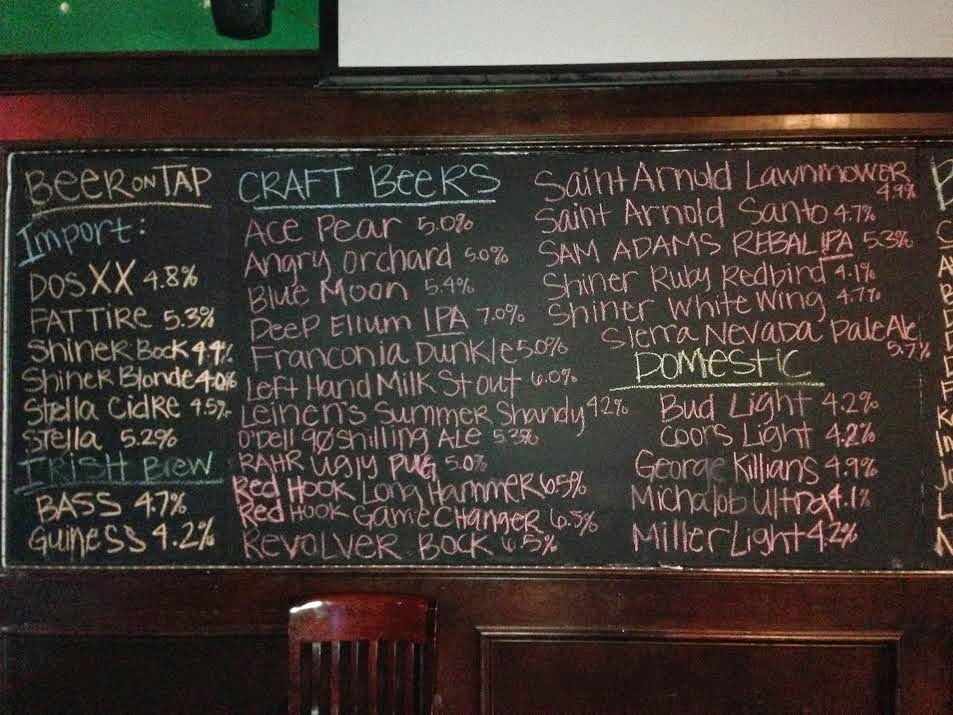 BEER ON TAP
Import:
DOS XX 4.8%
FAT TIRE 5.3%
Shiner Bock 4.4%
Shiner Blonde 4.0%
Stella Cidre 4.5%
Stella 5.2%
IRISH BREW
BASS 4.7%
Guiness 4.2%
CRAFT BEERS
Ace Pear 5.0%
Angry Orchard 5.0%
Blue Moon 5.4%
Deep Ellum IPA 7.0%
Franconia Dunkle 5.0%
Left Hand Milk Stout 6.0%
Leinen's Summer Shandy 4.2%
O'Dell 90 Shilling Ale 5.3%
RAHR Ugly Pug 5.0%
Red Hook Long Hammer 6.5%
Red Hook Game Changer 6.5%
Revolver Bock 6.5%
Saint Arnold Lawnmower
4.9%
Saint Arnold Santo 4.7%
SAM ADAMS REBAL IPA 5.3%
Shiner Ruby Redbird 4.1%
Shiner White Wing 4.7%
Sierra Nevada Pale Ale
5.7%
DOMESTIC
Bud Light 4.2%
Coors Light 4.2%
George Killians 4.9%
Michalob Ultra 4.1%
Miller Light 4.2%